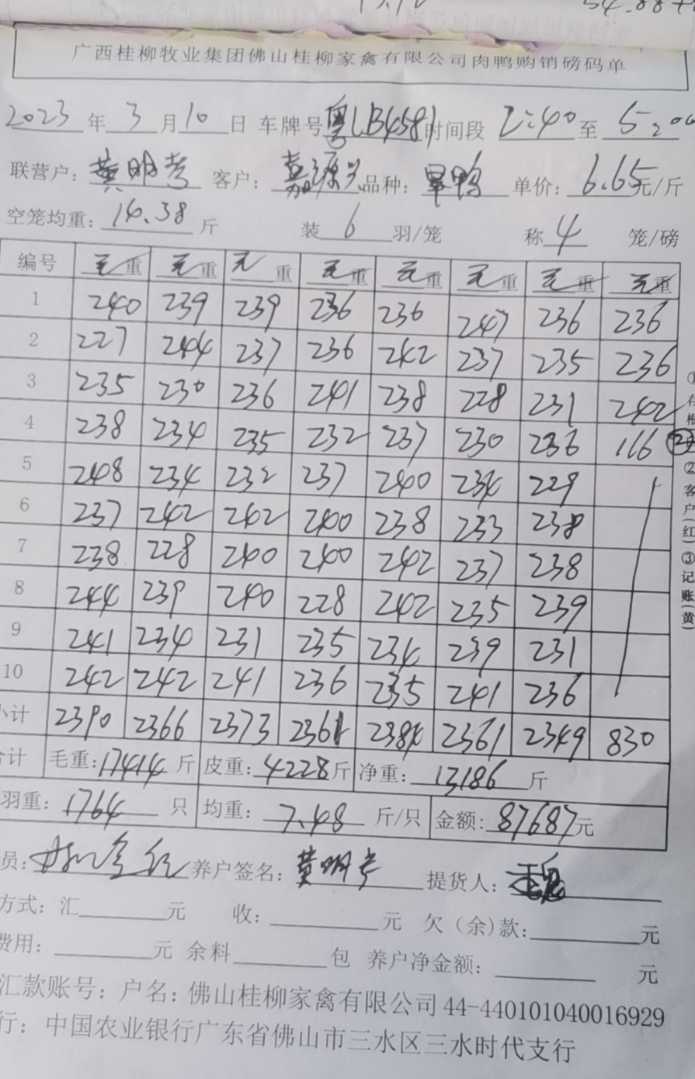 广西桂柳牧业集团佛山桂柳家禽有限公司肉鸭购销磅码单
2023 年 3 月 10 日 车牌号 粤LB4581 时间段 2:40 至 5:00
联营户: 黄明 客户: 嘉源兴 品种: 旱鸭 单价: 6.65 元/斤
空笼均重: 14.38 斤 装 6 羽/笼 称 4 笼/磅
编号 毛重 毛重 毛重 毛重 毛重 毛重 毛重 毛重
1 240 239 239 236 236 247 236 236
2 227 244 237 236 242 237 235 236
3 235 230 236 241 238 228 231 242
4 238 234 235 232 237 230 236 116
5 248 234 232 237 240 234 229
6 237 242 242 240 238 233 238
7 238 228 240 240 242 237 238
8 244 239 240 228 242 235 239
9 241 234 231 235 234 239 231
10 242 242 241 236 235 241 236
小计 2390 2366 2373 2361 2384 2361 2349 830
合计 毛重: 17414 斤 皮重: 4228 斤 净重: 13186 斤
羽重: 1764 只 均重: 7.48 斤/只 金额: 87687 元
员: 养户签名: 黄明 提货人:
方式: 汇 元 收: 元 欠(余)款: 元
费用: 元 余料 包 养户净金额: 元
汇款账号: 户名: 佛山桂柳家禽有限公司 44-440101040016929
行: 中国农业银行广东省佛山市三水区三水时代支行
②客户(红)③记账(黄)